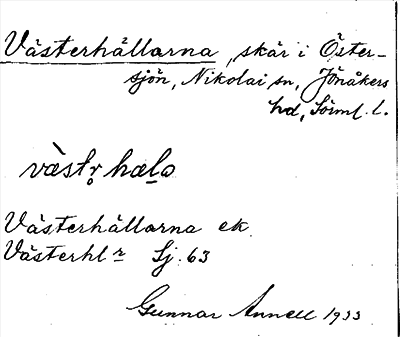 Västerhällarna, skär i Öster-
sjön, Nikolai sn, Jönåkers
hd, Sörml. l.
væ̀str̥ hæla
Västerhällarna ek.
Västerhl r Sj. 63
Gunnar Annell 1933